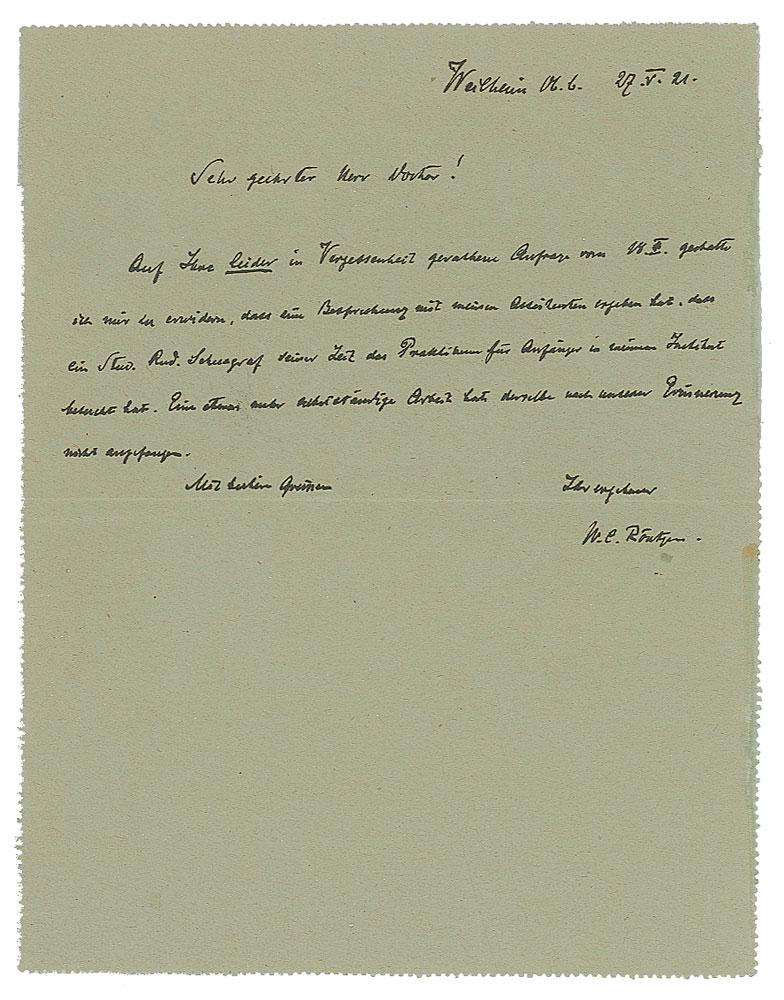 Weilheim Ob.b. 27.V.21.
Sehr geehrter Herr Doctor!
Auf Ihre leider in Vergessenheit gerathene Anfrage vom 18. gestatte
ich mir zu erwidern, dass eine Besprechung mit meinen Assistenten ergeben hat, dass
ein Stud. Rud. seiner Zeit das Praktikum für Anfänger in meinem Institut
besucht hat. Eine etwas mehr selbstständige Arbeit hat derselbe nach unserer Erinnerung
nicht angefangen.
Mit besten Grüssen Ihr ergebener
W. C. Röntgen.